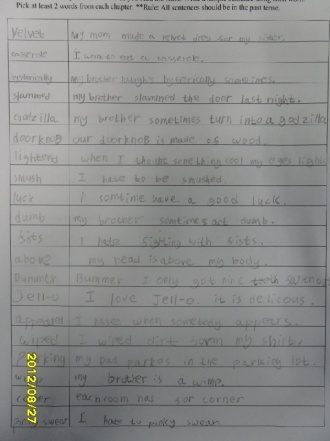 Pick at least 2 words from each chapter. **Rule: All sentences should be in the past tense.
Velvet My mom made a velvet dress for my sister.
I want to eat a casserole.
my brother laughs hysterically sometimes.
slammed my brother slammed the door last night.
Godzilla my brother sometimes turn into a godzilla
doorknob our doorknob is made of wood.
when I thought something cool my eyes
I have to be smashed.
luck I somtime have a good luck.
dumb my brother somtimes act dumb.
fists I hate fighting with fists.
above my head is above my body.
Bummer Bummer I only got
Jell-o I love Jell-o. it is delicous.
appeared I when somebody appears.
wiped I wiped dirt from my shirt.
Parking my dad parkes in the parking lot.
my brother is a wimp.
corner each room has for corner
swear I have to pinky swear
2012/08/27